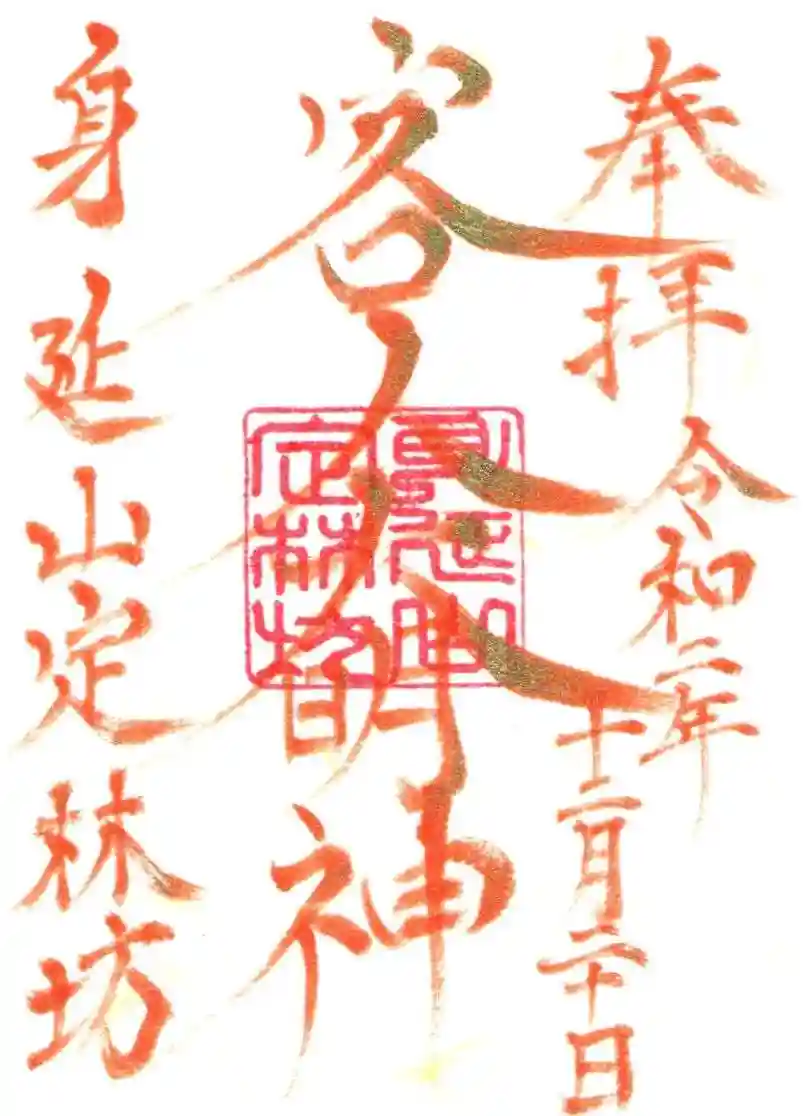 奉拝
令和二年
十二月二十日
客人大明神
身延山定林坊
身延山
定林坊